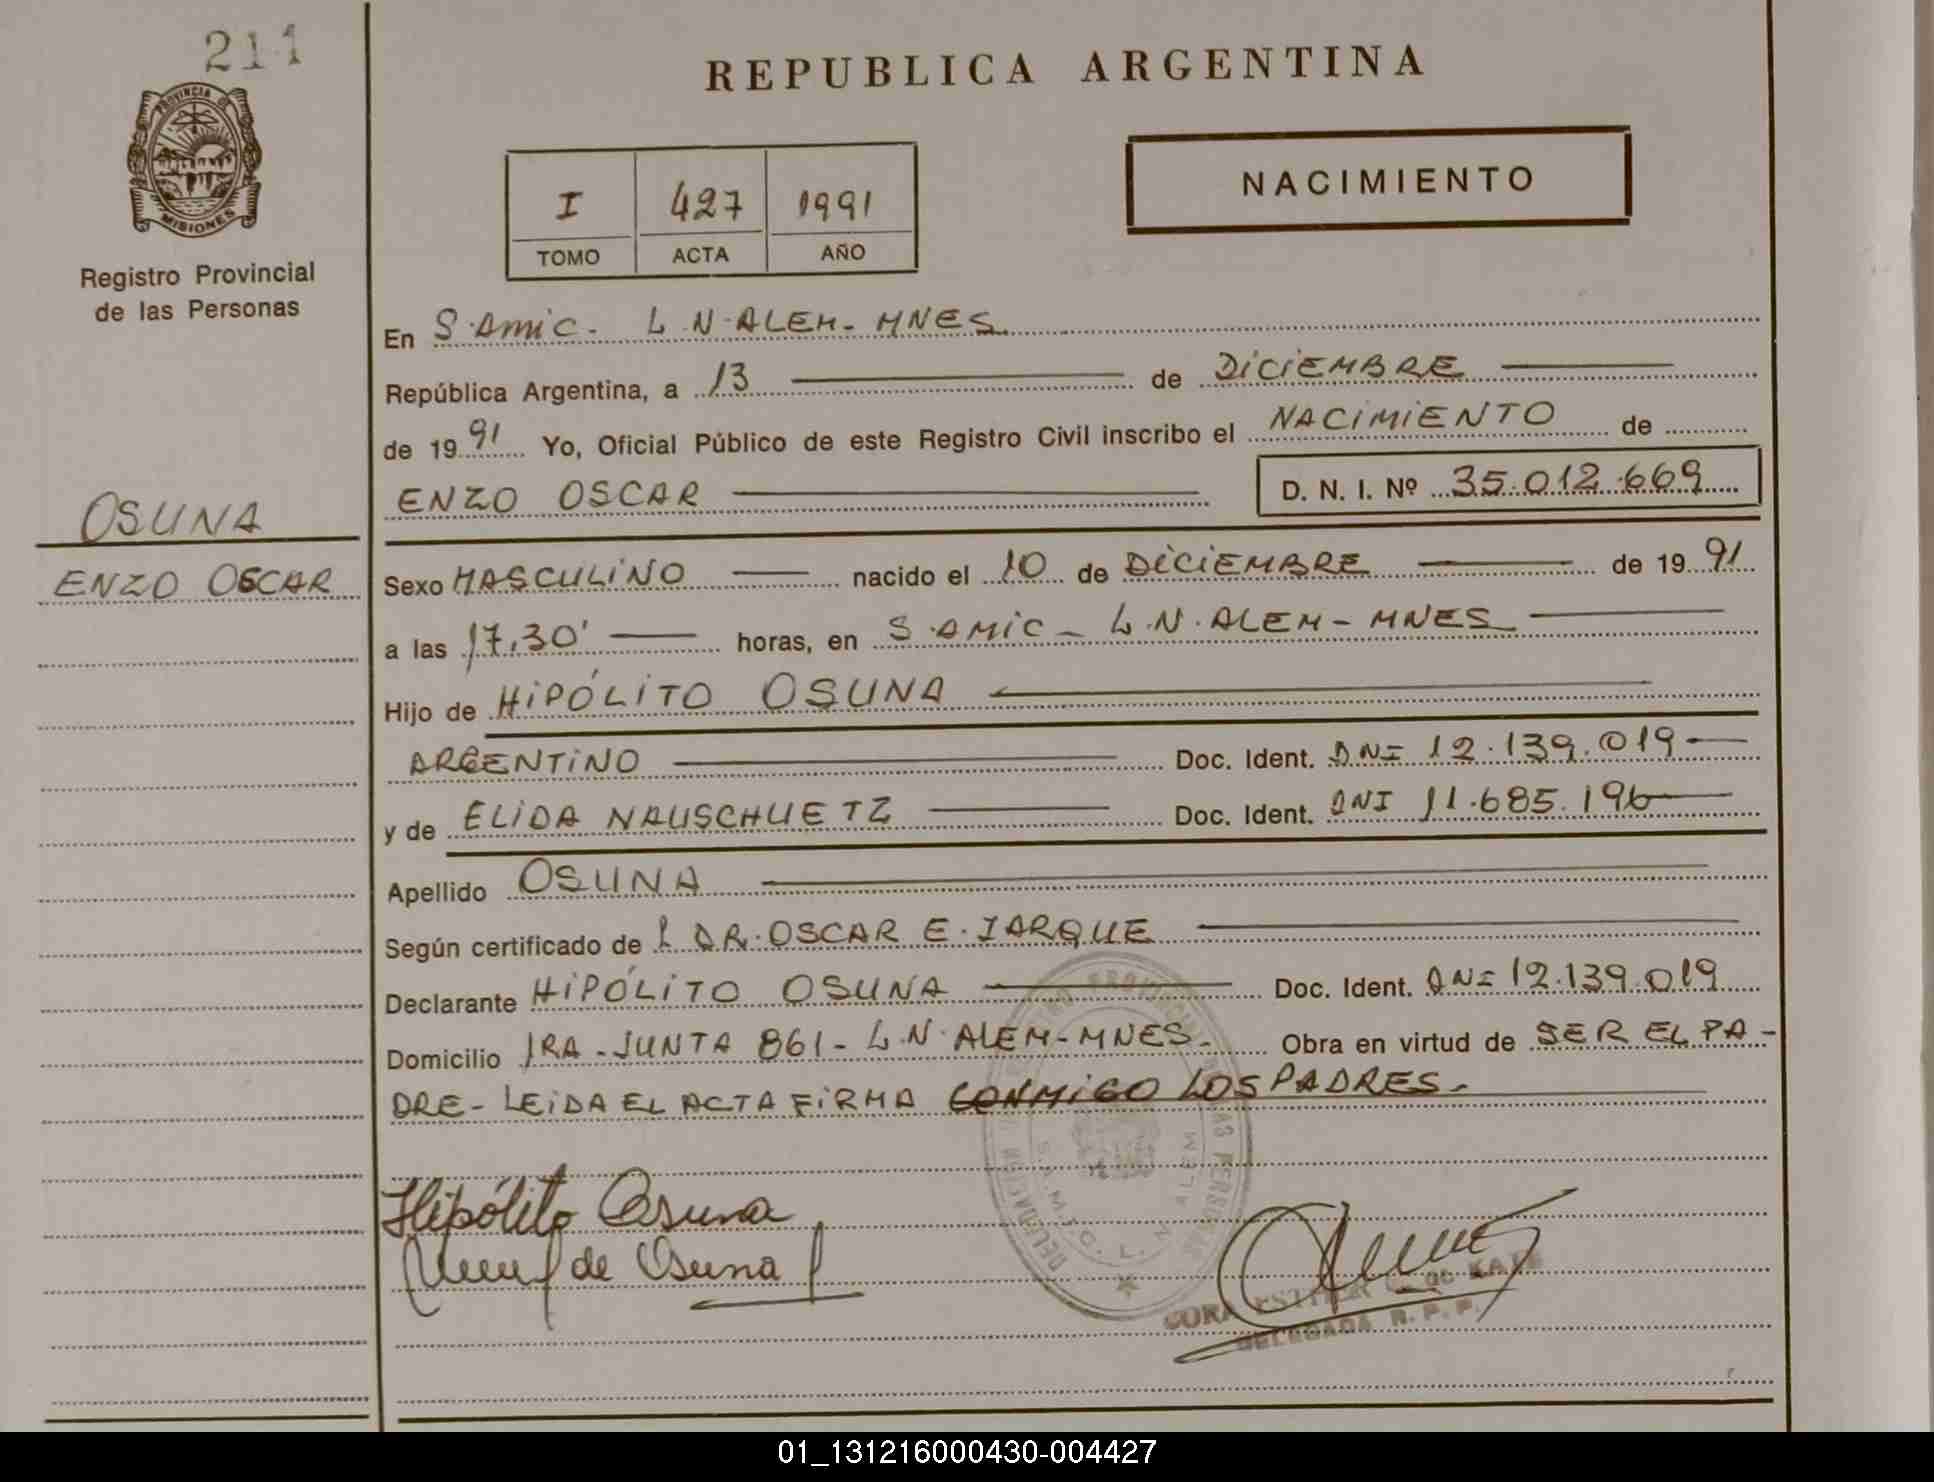 211
REPUBLICA ARGENTINA
PROVINCIA DE
MISIONES
Registro Provincial
de las Personas
I 427 1991
TOMO ACTA AÑO
NACIMIENTO
En S.Amic- L.N.ALEM- MNES
República Argentina, a 13 de DICIEMBRE
de 1991 Yo, Oficial Público de este Registro Civil inscribo el NACIMIENTO de
ENZO OSCAR D. N. I. Nº 35.012.669
OSUNA
ENZO OSCAR
Sexo MASCULINO nacido el 10 de DICIEMBRE de 1991
a las 17,30' horas, en S.AMIC- L.N.ALEM- MNES
Hijo de HIPÓLITO OSUNA
ARGENTINO Doc. Ident. DNI 12.139.019
y de ELIDA NAUSCHUETZ Doc. Ident. DNI 11.685.196
Apellido OSUNA
Según certificado de L DR. OSCAR E. JARQUE
Declarante HIPÓLITO OSUNA Doc. Ident. DNI 12.139.019
Domicilio 1RA-JUNTA 861- L.N.ALEM-MNES- Obra en virtud de SER EL PA-
DRE- LEIDA EL ACTA FIRMA CONMIGO LOS PADRES.
Hipólito Osuna
de Osuna
DELEGADA R.P.P.
S.A.M.I.C. L. N. ALEM
01_131216000430-004427